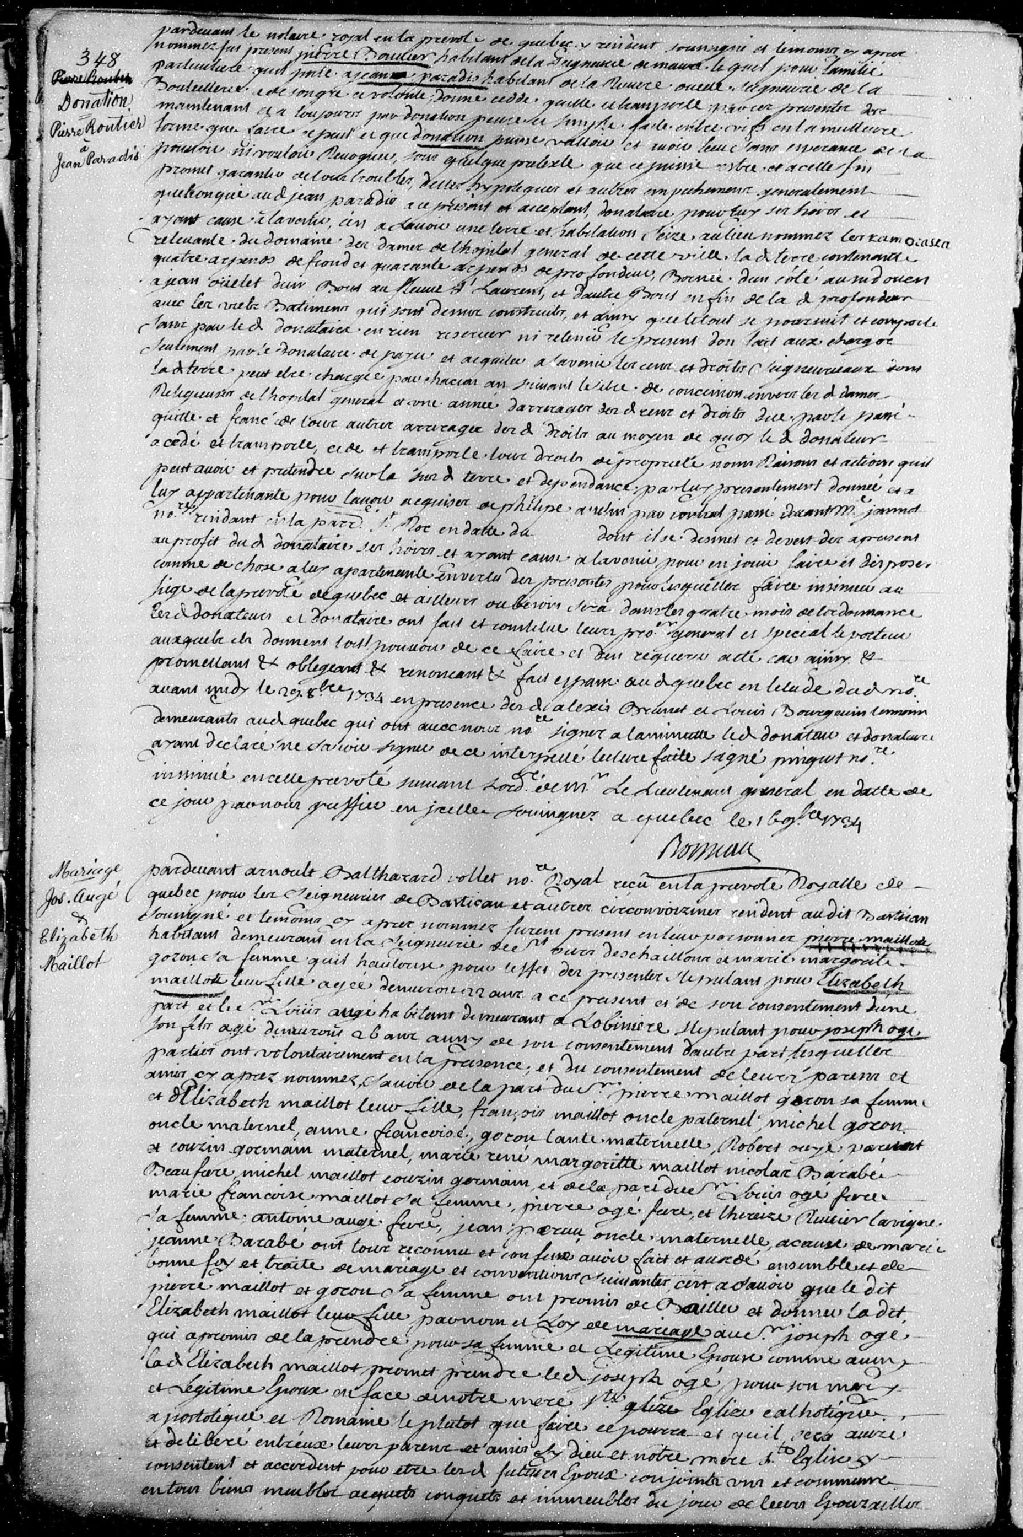 348
Pierre Routier
Donation
Pierre Routier
a
Jean Paradis
pardevant le notaire royal en la prevosté de quebec y resident soussigné et temoins cy apres
nommez fut present pierre Boutier habitant de la Seigneurie de lequel pour l'amitié
particuliere quil porte a jean paradis habitant de la Riviere ouelle seigneurie de la
Bouteillerie de son gré et volonté donne cedde quitte et transporte par ces presentes des
maintenant et a toujours par donation pure et simple faite entre vifs en la meilleure
forme que faire ce peut et que donation puisse valloir et avoir lieu sans esperance de la
pouvoir ni vouloir Revoquer, sous quelque pretexte que ce puisse estre et a celle fin
promet garantir de tous troubles, dettes hypoteques et autres empechemens generalement
quelconque aud jean paradis a ce présent et acceptant, donataire pour luy ses hoirs et
ayant cause a lavenir, cest a scavoir une terre et habitation Size au lieu nommez les Kamorasca
relevante du domaine des dames de l'hopital general de cette ville la d terre contenante
quatre arpents de front et quarante arpents de profondeur, Bornée d'un côté au sud ouest
a jean ouelet d'un Bout au fleuve St Laurent, et d'autre Bout en fin de la d profondeur
avec les vieux Batimens qui sont dessus construits, et ainsy que le tout se poursuit et comporte
sans par le d donataire en rien reserver ni retenir le present don fait aux charges
seulement par le donataire de payer et acquitter a l'avenir les cens et droits Seigneuriaux dont
la d terre peut etre chargée par chacun an suivant le titre de concession envers les d dames
Religieuses de l'hopital general et une année d'arrerages des d cens et droits due par le passé
quitte et franc de tous autres arrerages des d droits au moyen de quoy le d donateur
a cédé et transporté, cede et transporte tous droits de proprieté noms Raisons et actions quil
peut avoir et pretendre sur la sus d terre et dependance par luy presentement donnée et a
luy appartenante pour lavoir acquise de philipe par contrat passé devant Me jannot
nore residant en la parr. St Roc en datte du dont il se desmet et devest des apresent
au profit du d donataire ses hoirs et ayant cause a lavenir pour en jouir faire et disposer
comme de chose a luy apartenante en vertu des presentes pour lesquelles faire insinuer au
siege de la prevoté de quebec et ailleurs ou besoin sera dans les quatre mois de lordonnance
lesd donateur et donataire ont fait et constitué leurs pror general et special le porteur
auxquels ils donnent tout pouvoir de ce faire et d'en requerir acte car ainsy &
promettant & obligeant & renonceant & fait et passé aud quebec en letude dud nore
avant midy le 29 8bre 1734 en presence des d alexis Brunet et Louis Bourgeois temoins
demeurants aud quebec qui ont avec nous nore signez a la minutte led donateur et donataire
ayant declaré ne scavoir signer de ce interpellé lecture faite signé pinguet nore
insinué en cette prevoté suivant lord. de Mr Le Lieutenant general en datte de
ce jour par nous greffier en jcelle soussigner a quebec le 16 9bre 1734
Boisseau
Mariage
Jos. Augé
&
Elizabeth
Maillot
pardevant arnoult Balthazard pollet nore Royal recu en la prevoté Royalle de
quebec pour les Seigneuries de Batiscan et autres circonvoisines resident audit Batiscan
soussigné et temoins cy apres nommez furent presens en leur personnes pierre maillot
habitant demeurant en la Seigneurie de St ours deschaillons et marie margueritte
gocou sa femme quil hautorise pour leffet des presentes stipulans pour Elizabeth
maillot leur fille agée denviron 22 ans a ce present et de son consentement d'une
part et le sr Louis augé habitant demeurant a Lobiniere stipulant pour joseph oge
son fils agé denvirons 26 ans aussy de son consentement dautre part, lesquelles
parties ont volontairement en la présence, et du consentement de leurs parens et
amis cy aprez nommez, scavoir de la part du sr pierre maillot gocou sa femme
et d'Elizabeth maillot leur fille, françois maillot oncle paternel, michel gocou
oncle maternel, anne françoise, gocou tante maternelle, Robert ouye parent
et couzin germain maternel, marie rené margueritte maillot nicolas Barabé
Beau frere michel maillot couzin germain, et de la part du sr Louis oge frere
marie francoise maillot sa femme, pierre ogé frere, et therese Rivier lavigne
sa femme, antoine augé frere, jean oncle maternelle, a cause de marie
jeanne Barabé ont tous reconnu et confessé avoir fait et ensemble et de
bonne foy et traité de mariage et conventions suivantes cest a scavoir que le dit
pierre maillot et gocou sa femme ont promis de Bailler et donner la dit.
Elizabeth maillot leur fille par nom et Loy de mariage au sr. joseph oge
qui a promis de la prendre pour sa femme et Legitime Epouse comme aussy
lad Elizabeth maillot promet prendre led joseph ogé pour son mary
et Legitime Epoux en face de notre mere Ste glize Eglise catholique
apostolique et Romaine le plutot que faire ce pourra et quil sera avisé
et deliberé entreux leurs parens et amis sy dieu et notre mere Ste Eglise sy
consentent et accordent pour etre les d futurs Epoux conjoints uns et communs
en tous biens meubles acquets conquets et immeubles du jour de leurs Epouzailles